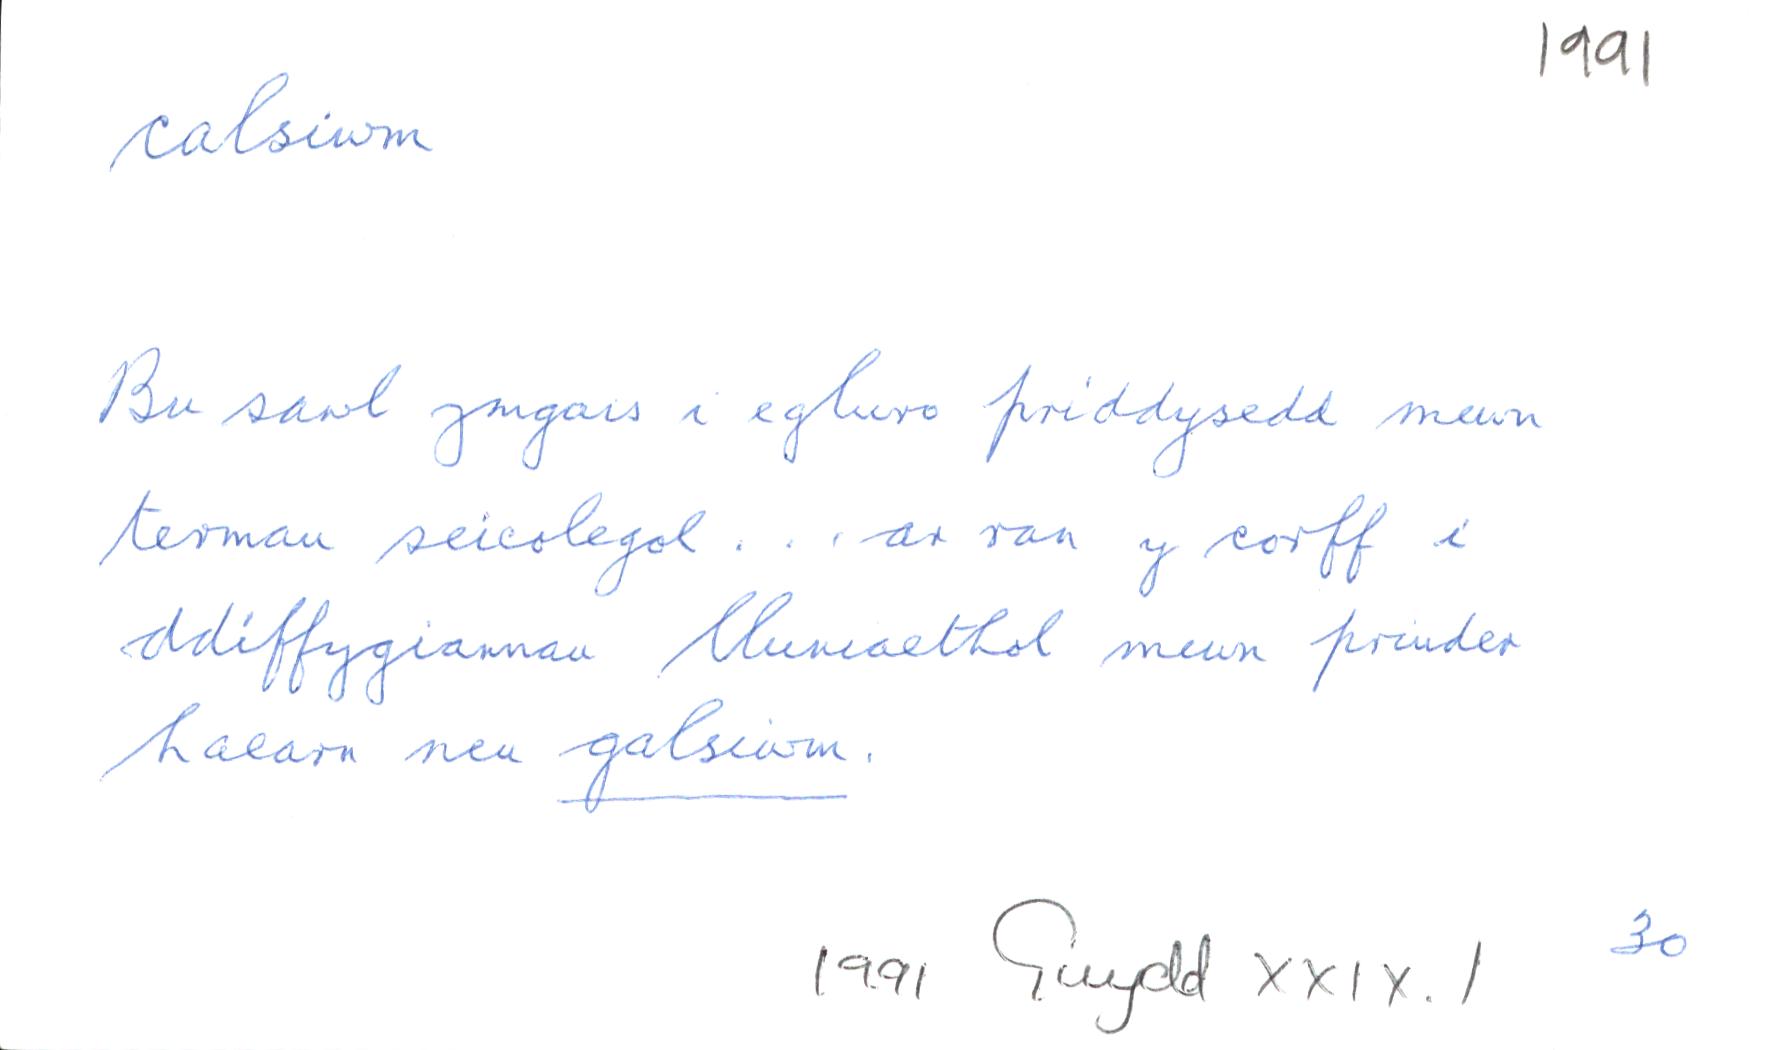 1991
calsiwm
Bu sawl ymgais i egluro priddysedd mewn
termau seicolegol . . . ar ran y corff i
ddiffygiannau lluniaethol mewn prinder
haearn neu galsiwm.
1991 Gwydd XXIX. 1 30